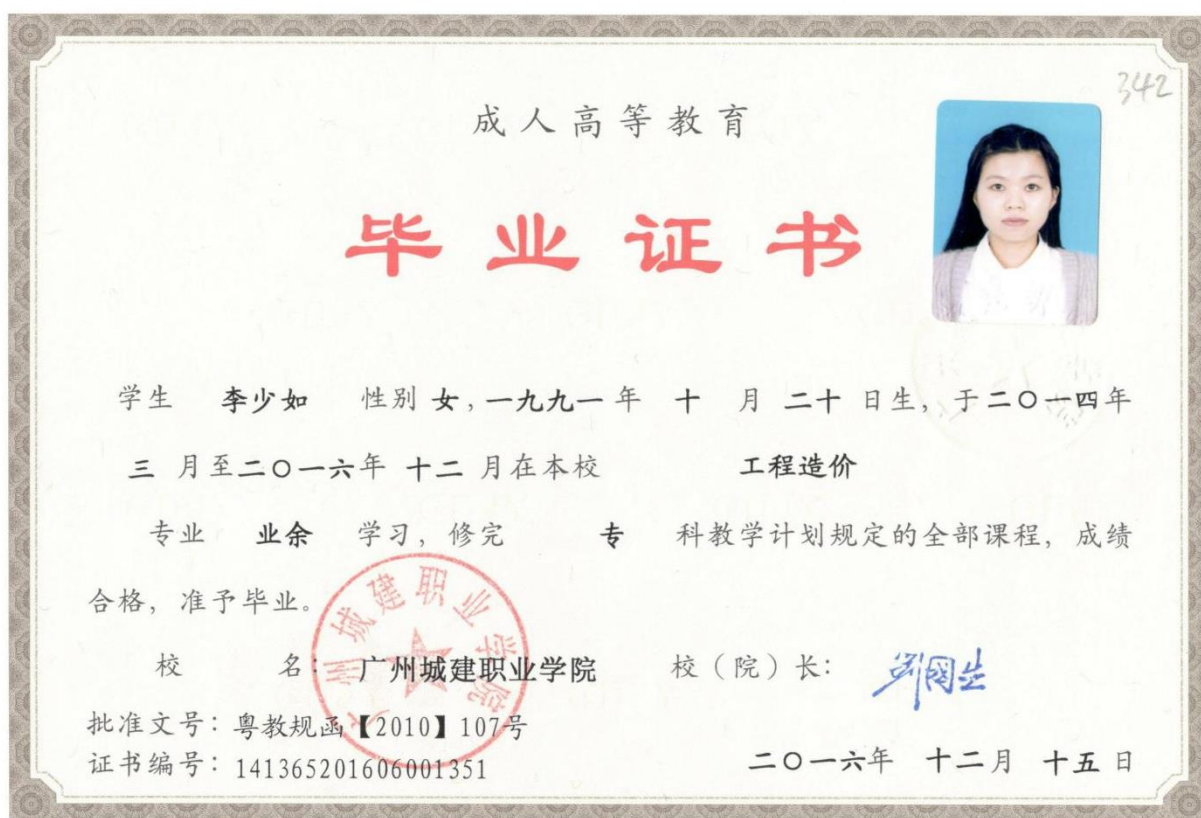 342
成人高等教育
毕业证书
学生 李少如 性别 女,一九九一年 十 月 二十 日生,于二〇一四年
三 月至二〇一六年 十二 月在本校 工程造价
专业 业余 学习,修完 专 科教学计划规定的全部课程,成绩
合格,准予毕业。
广州城建职业学院
校 名: 广州城建职业学院 校(院)长:
批准文号:粤教规函【2010】107号
证书编号:141365201606001351 二〇一六年 十二月 十五 日